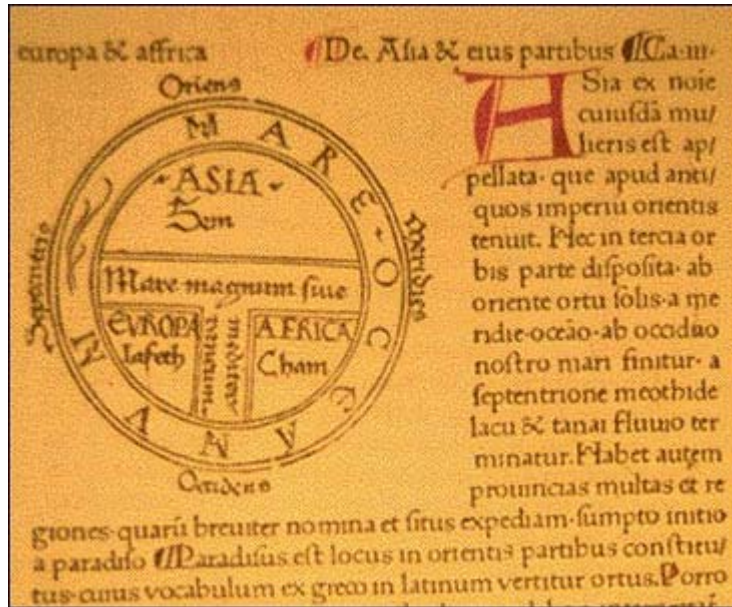 europa & affrica ¶De. Asia & eius partibus ¶Ca·iii·
Oriens
MARE·OCEANVM
Septentrio
Meridies
·ASIA·
Sem
Mare magnum siue
mediter
raneum.
EVROPA
Iafeth
AFRICA
Cham
Occidens
ASia ex noie
cuiusdā mu/
lieris est ap/
pellata· que apud anti/
quos imperiū orientis
tenuit. Hec in tercia or
bis parte disposita· ab
oriente ortu solis·a me
ridie·oceāo·ab occiduo
nostro mari finitur· a
septentrione meothide
lacu & tanai fluuio ter
minatur. Habet autem
prouincias multas et re
giones·quarū breuiter nomina et situs expediam·sumpto initio
a paradiso ¶Paradisus est locus in orientis partibus constitu/
tus·cuius vocabulum ex greco in latinum vertitur ortus. Porro